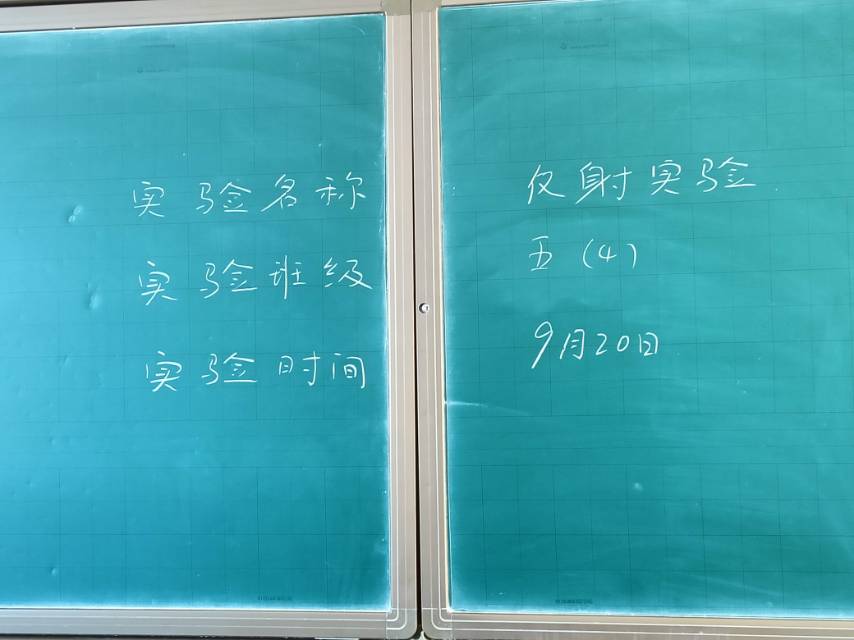 实验名称 反射实验
实验班级 五（4）
实验时间 9月20日